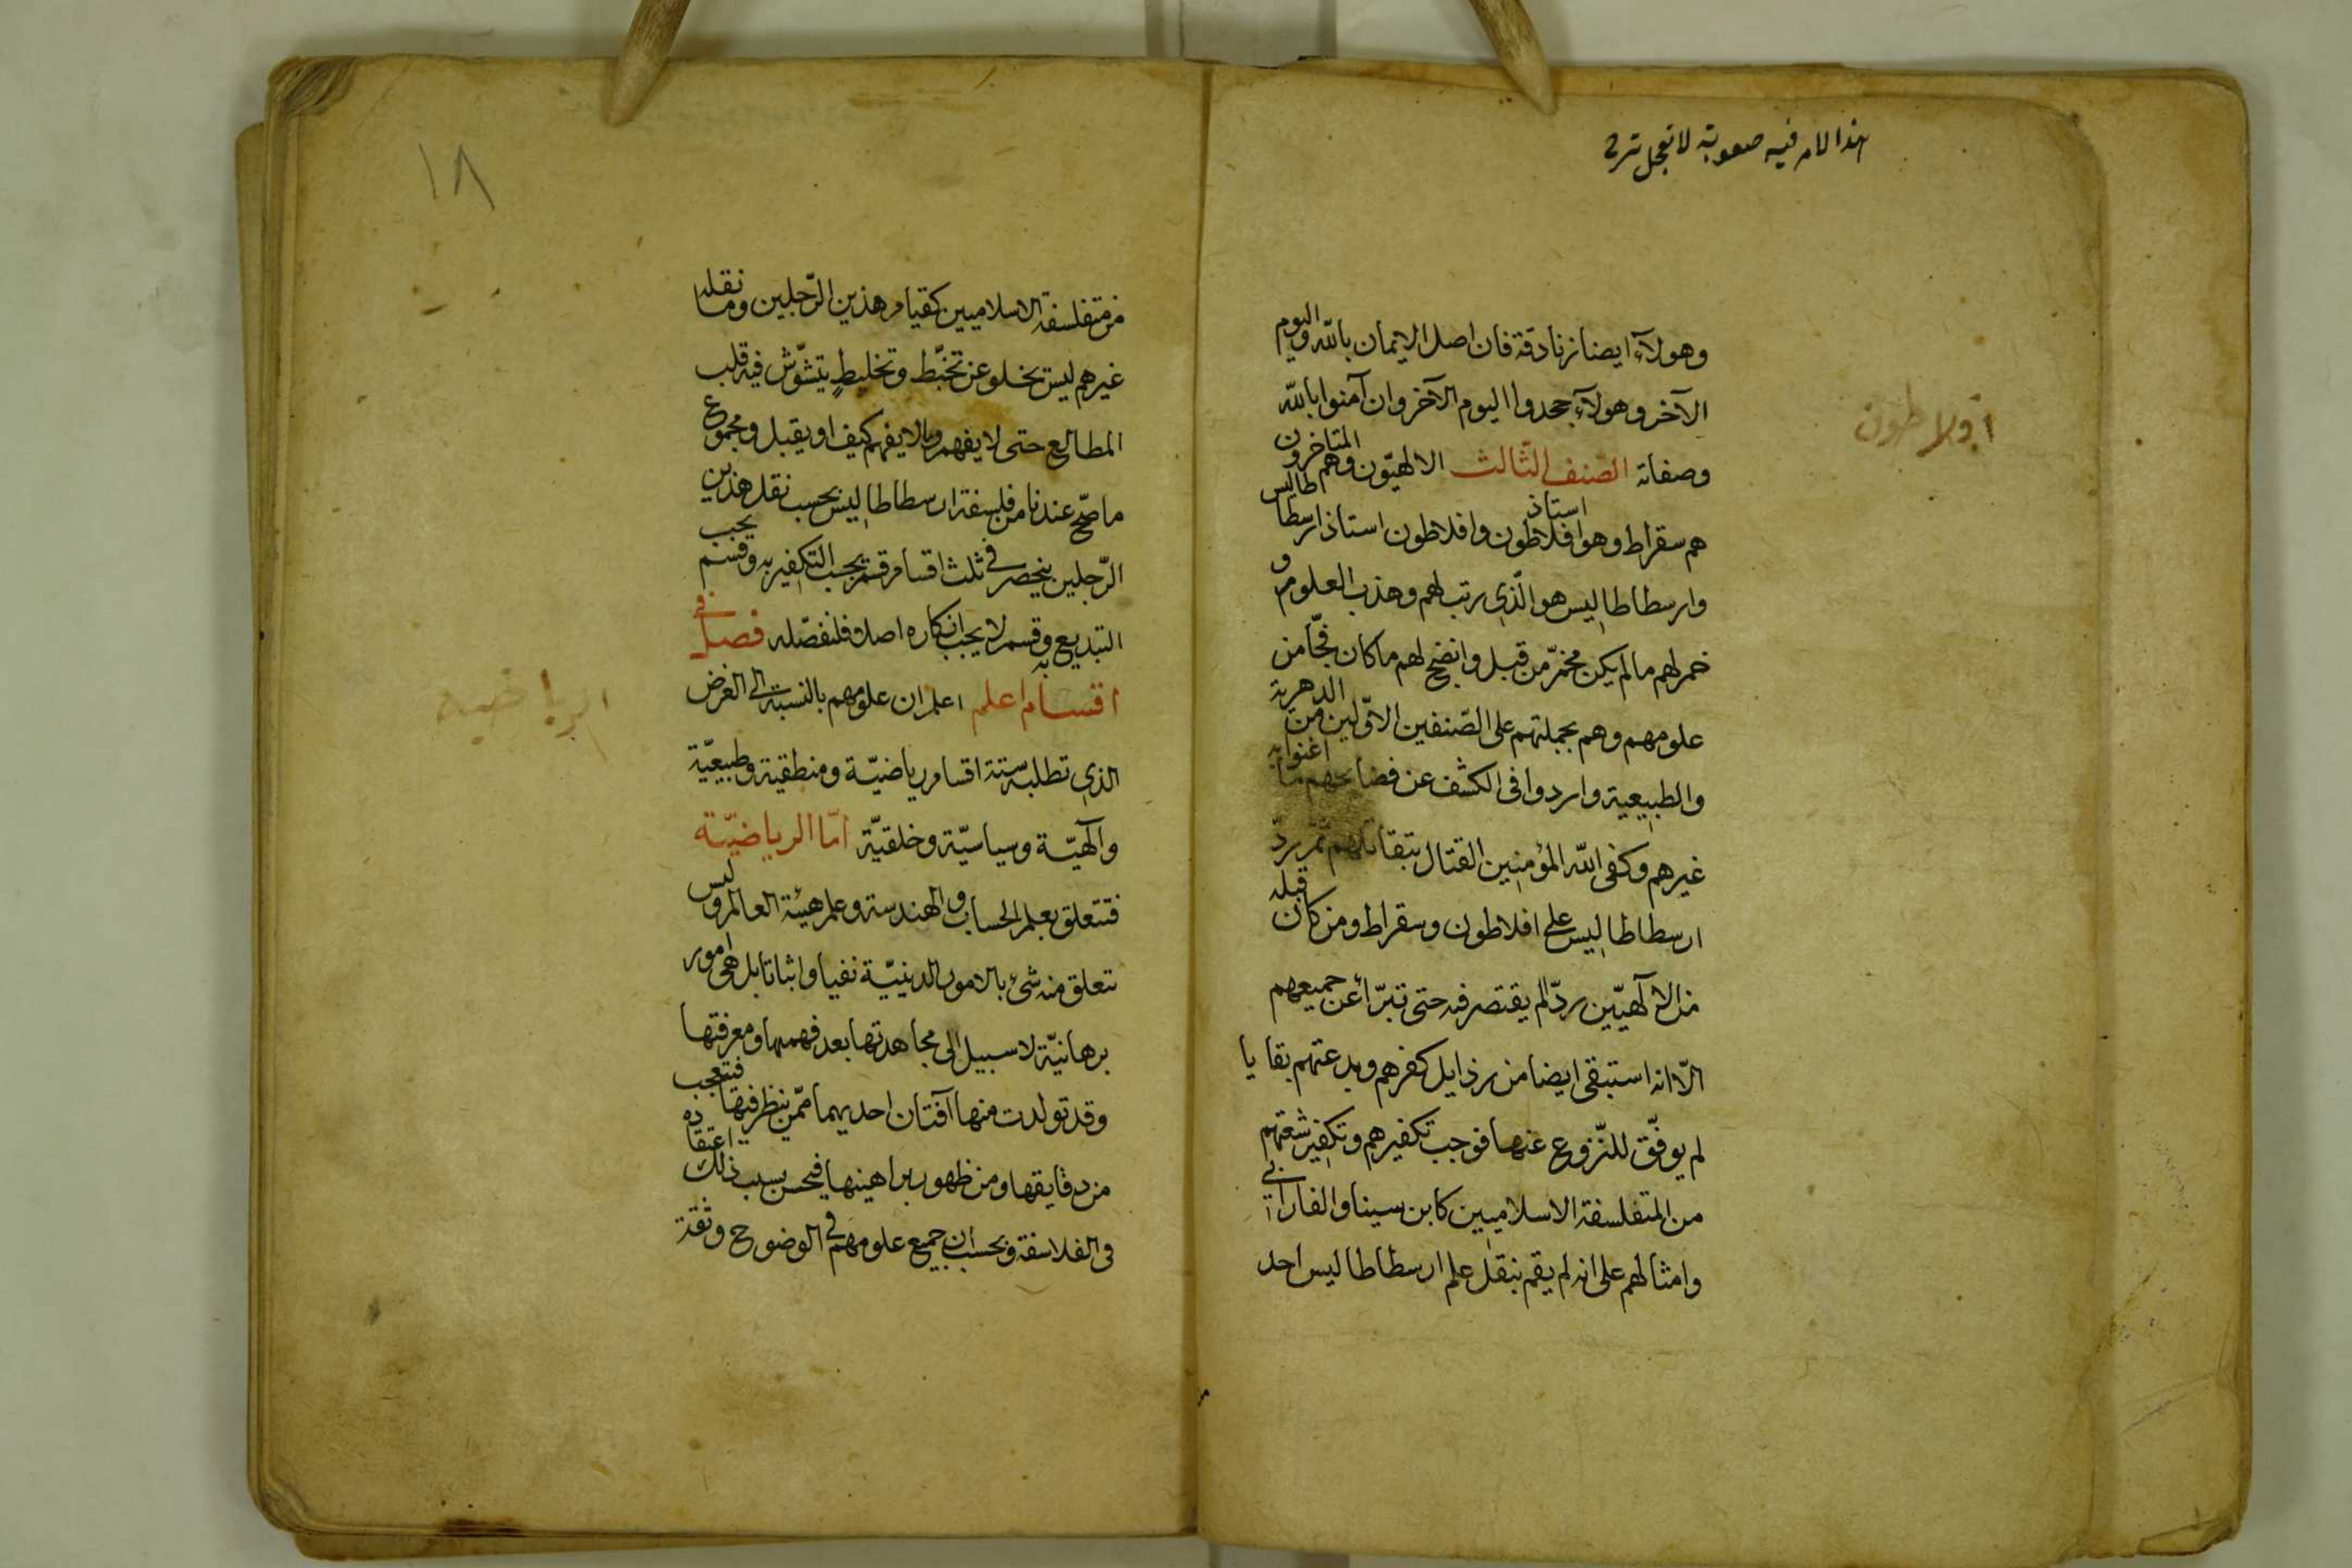 هذا الامر فيه صعوبة لا تعجل
وهولآء ايضا زنادقة فان اصل الايمان بالله واليوم
الآخر وهولآء جحدوا اليوم الآخر وان آمنوا بالله
وصفاته الصّنف الثالث الالهيّون وهم المتاخرون
هم سقراط وهو استاذ افلاطون وافلاطون استاذ ارسطاطاليس
وارسطاطاليس هو الّذي رتب لهم وهذب العلوم و
خمر لهم مالم يكن مخمرّ من قبل وانضج لهم ما كان فجّا من
علومهم وهم بجملتهم على الصّنفين الاوّلين من الدهرية
والطبيعية واردوا في الكشف عن فضايحهم ما اغنوا به
غيرهم وكفى الله المؤمنين القتال بتقاتلهم ثمّ ردّ
ارسطاطاليس على افلاطون وسقراط ومن كان قبله
من الالآهيّين ردّ الم يقتصر فيه حتى تبرّأ عن جميعهم
الّا انه استبقى ايضا من رذايل كفرهم وبدعتهم بقايا
لم يوفّق للنّزوع عنها فوجب تكفيرهم وتكفير شعتهم
من المتفلسفة الاسلاميين كابن سينا والفارابي
وامثالهم على انه لم يقم بنقل علم ارسطاطاليس احد
افولاطون
١٨
من متفلسفة الاسلاميين كقيام هذين الرّجلين وما نقله
غيرهم ليس يخلو عن تخبّط وتخليطٍ يتشوّش فيه قلب
المطالع حتى لا يفهم ومالا يفهم كيف او يقبل ومجموع
ما صحّ عندنا من فلسفة ارسطاطاليس بحسب نقل هذين
الرّجلين ينحصر في ثلث اقسام قسم يجب التكفير به وقسم يجب
التبديع به وقسم لا يجب انكاره اصلا فلنفصّله فصل في
اقسام اعلم اعلم ان علومهم بالنسبة الى الغرض
الذي تطلبه ستة اقسام رياضيّة ومنطقية وطبيعيّة
وآلهيّة وسياسيّة وخلقيّة امّا الرياضيّة
فتتعلق بعلم الحساب والهندسة وعلم هيئة العالم وليس
تتعلق منه شئ بالامور الدينيّة نفيا واثباتا بل هي امور
برهانيّة لا سبيل الى مجاهدتها بعد فهمها ومعرفتها
وقد تولدت منها آفتان احديهما ممّن ينظر فيها فيتعجب
من دقايقها ومن ظهور براهينها فيحسن بسبب ذلك اعتقاده
في الفلاسفة ويحسب ان جميع علومهم في الوضوح وثقة
الرياضيه